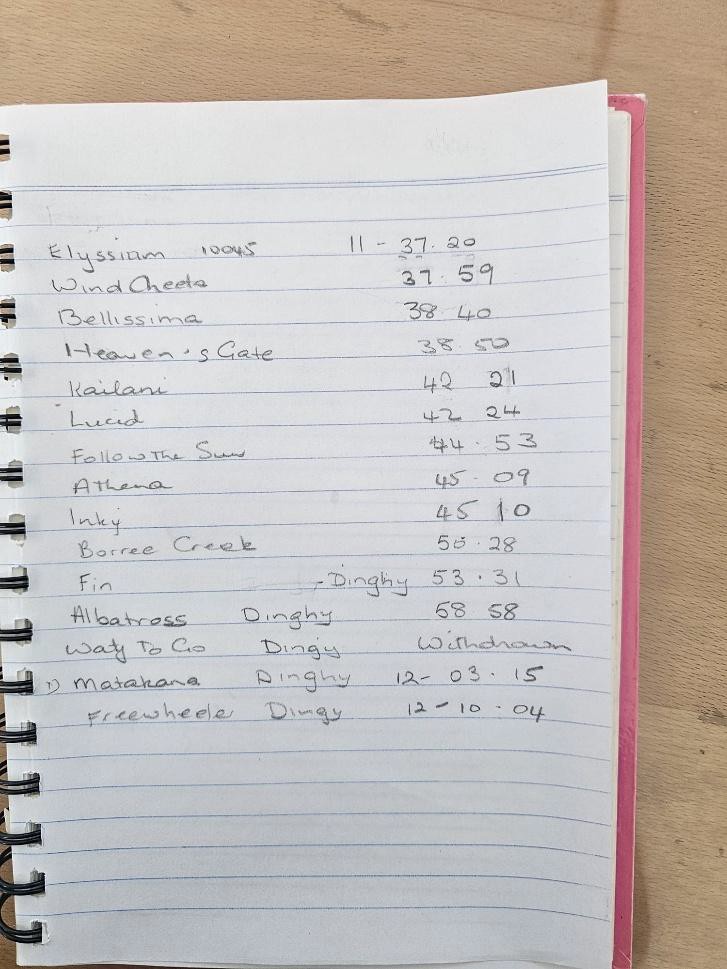 Elyssium 10045 11 - 37.20
Wind Cheeta 37.59
Bellissima 38 40
Heaven's Gate 38.50
Kailani 42 21
Lucid 42 24
Follow The Sun 44.53
Athena 45.09
Inky 45 10
Borree Creek 50.28
Fin - Dinghy 53.31
Albatross Dinghy 58 58
Way To Go Dingy Withdrawn
1) Matakana Dinghy 12- 03.15
Freewheeler Dingy 12-10.04